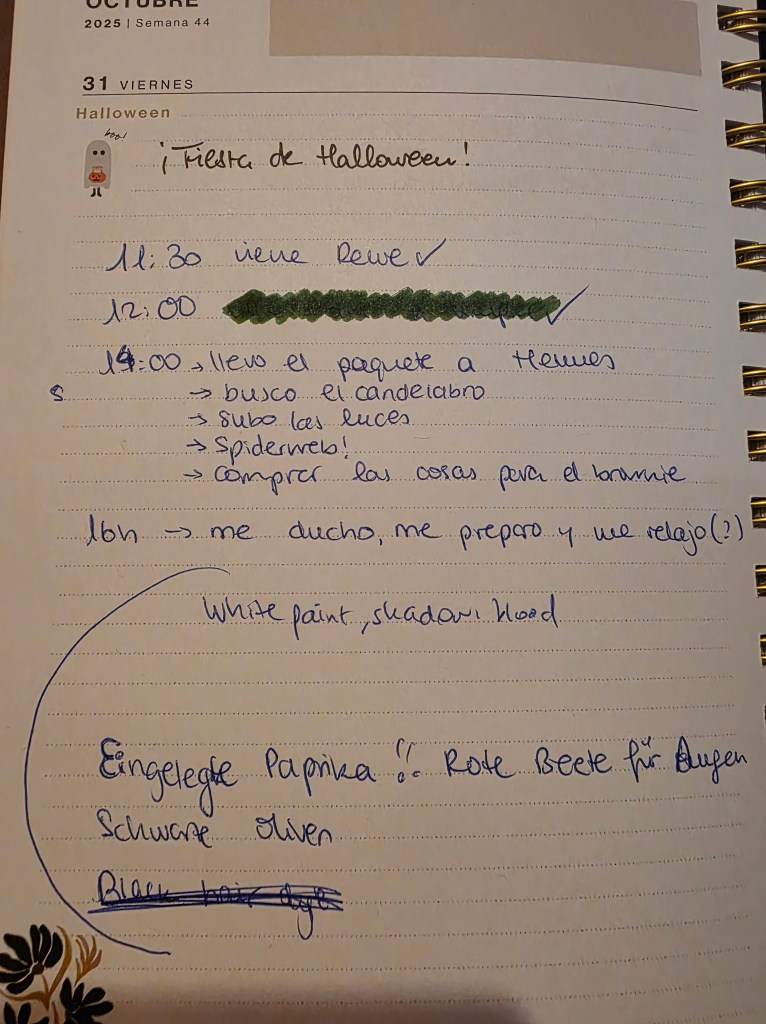 OCTUBRE
2025 | Semana 44
31 VIERNES
Halloween
boo!
¡Fiesta de Halloween!
11:30 viene Rewe ✓
12:00 ✓
14:00 → llevo el paquete a Hermes
→ busco el candelabro
→ subo las luces
→ Spiderweb!
→ comprar las cosas para el brownie
16h → me ducho, me preparo y me relajo(?)
White paint, shadow, blood
Eingelegte Paprika !! Rote Beete für Augen
Schwarze Oliven
Black hair dye